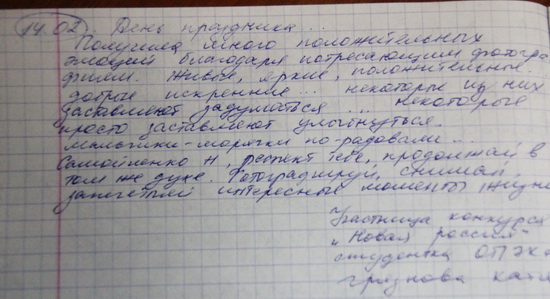 14.02. День праздника...
Получила много положительных
эмоций благодаря потрясающим фотогра
фиям. Живые, яркие, положительные.
добрые искренние... некоторые из них
заставляют задуматься.... некоторые
просто заставляют улыбнуться.
мальчики-морячки по-радовали...
Самойленко Н, респект тебе, продолжай в
том же духе. Фотографируй, снимай,
запечатлей интересные моменты жизни
Участница конкурса
"Новая россия"
студентка ОПЭК
грязнова катя